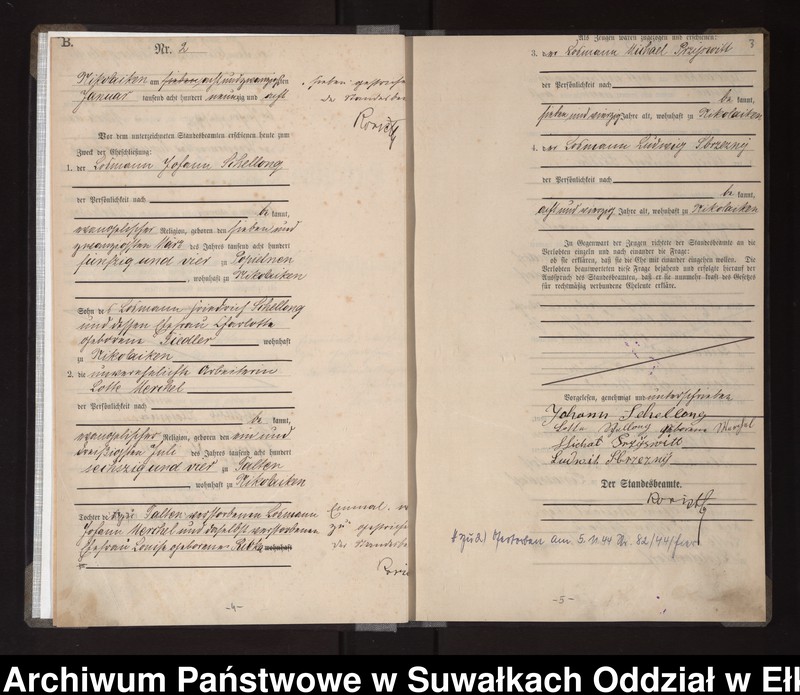 B.
Nr. 2
Nikolaiken am sieben acht und zwanzigsten
Januar tausend acht hundert neunzig und acht
Vor dem unterzeichneten Standesbeamten erschienen heute zum
Zweck der Eheschließung:
1. der Losmann Johann Schellong
der Persönlichkeit nach
be kannt,
evangelischer Religion, geboren den sieben und
zwanzigsten März des Jahres tausend acht hundert
fünfzig und vier zu
, wohnhaft zu Nikolaiken
Sohn des Losmann Friedrich Schellong
und dessen Ehefrau Charlotte
geborene Fiedler wohnhaft
zu Nikolaiken
2. die unverehelichte Arbeiterin
Lotte Merchel
der Persönlichkeit nach
be kannt,
evangelischer Religion, geboren den ein und
dreißigsten Juli des Jahres tausend acht hundert
sechszig und vier zu Talten
, wohnhaft zu Nikolaiken
Tochter des zu Talten verstorbenen Losmann
Johann Merchel und daselbst verstorbenen
Ehefrau Louise geborenen wohnhaft
zu
sieben gestrichen
Der Standesbe
Einmal
"zu" gestrich
Der Standesbe
-4-
Als Zeugen waren zugezogen und erschienen:
3
3. der Losmann Michael Przyswitt
der Persönlichkeit nach
be kannt,
sieben und vierzig Jahre alt, wohnhaft zu Nikolaiken
4. der Losmann Ludwig Sbrzezny
der Persönlichkeit nach
be kannt,
acht und vierzig Jahre alt, wohnhaft zu Nikolaiken
In Gegenwart der Zeugen richtete der Standesbeamte an die
Verlobten einzeln und nach einander die Frage:
ob sie erklären, daß sie die Ehe mit einander eingehen wollen. Die
Verlobten beantworteten diese Frage bejahend und erfolgte hierauf der
Ausspruch des Standesbeamten, daß er sie nunmehr kraft des Gesetzes
für rechtmäßig verbundene Eheleute erkläre.
Vorgelesen, genehmigt und unterschrieben
Johann Schellong
Lotte Schellong geborene Merchel
Michael Przyswitt
Ludwik Sbrzezny
Der Standesbeamte.
zu 2) Gestorben am 5.11.44 Nr. 82/44/
-5-
Archiwum Państwowe w Suwałkach Oddział w Ełk